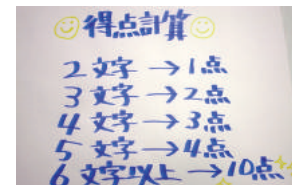 得点計算
2文字→1点
3文字→2点
4文字→3点
5文字→4点
6文字以上→10点